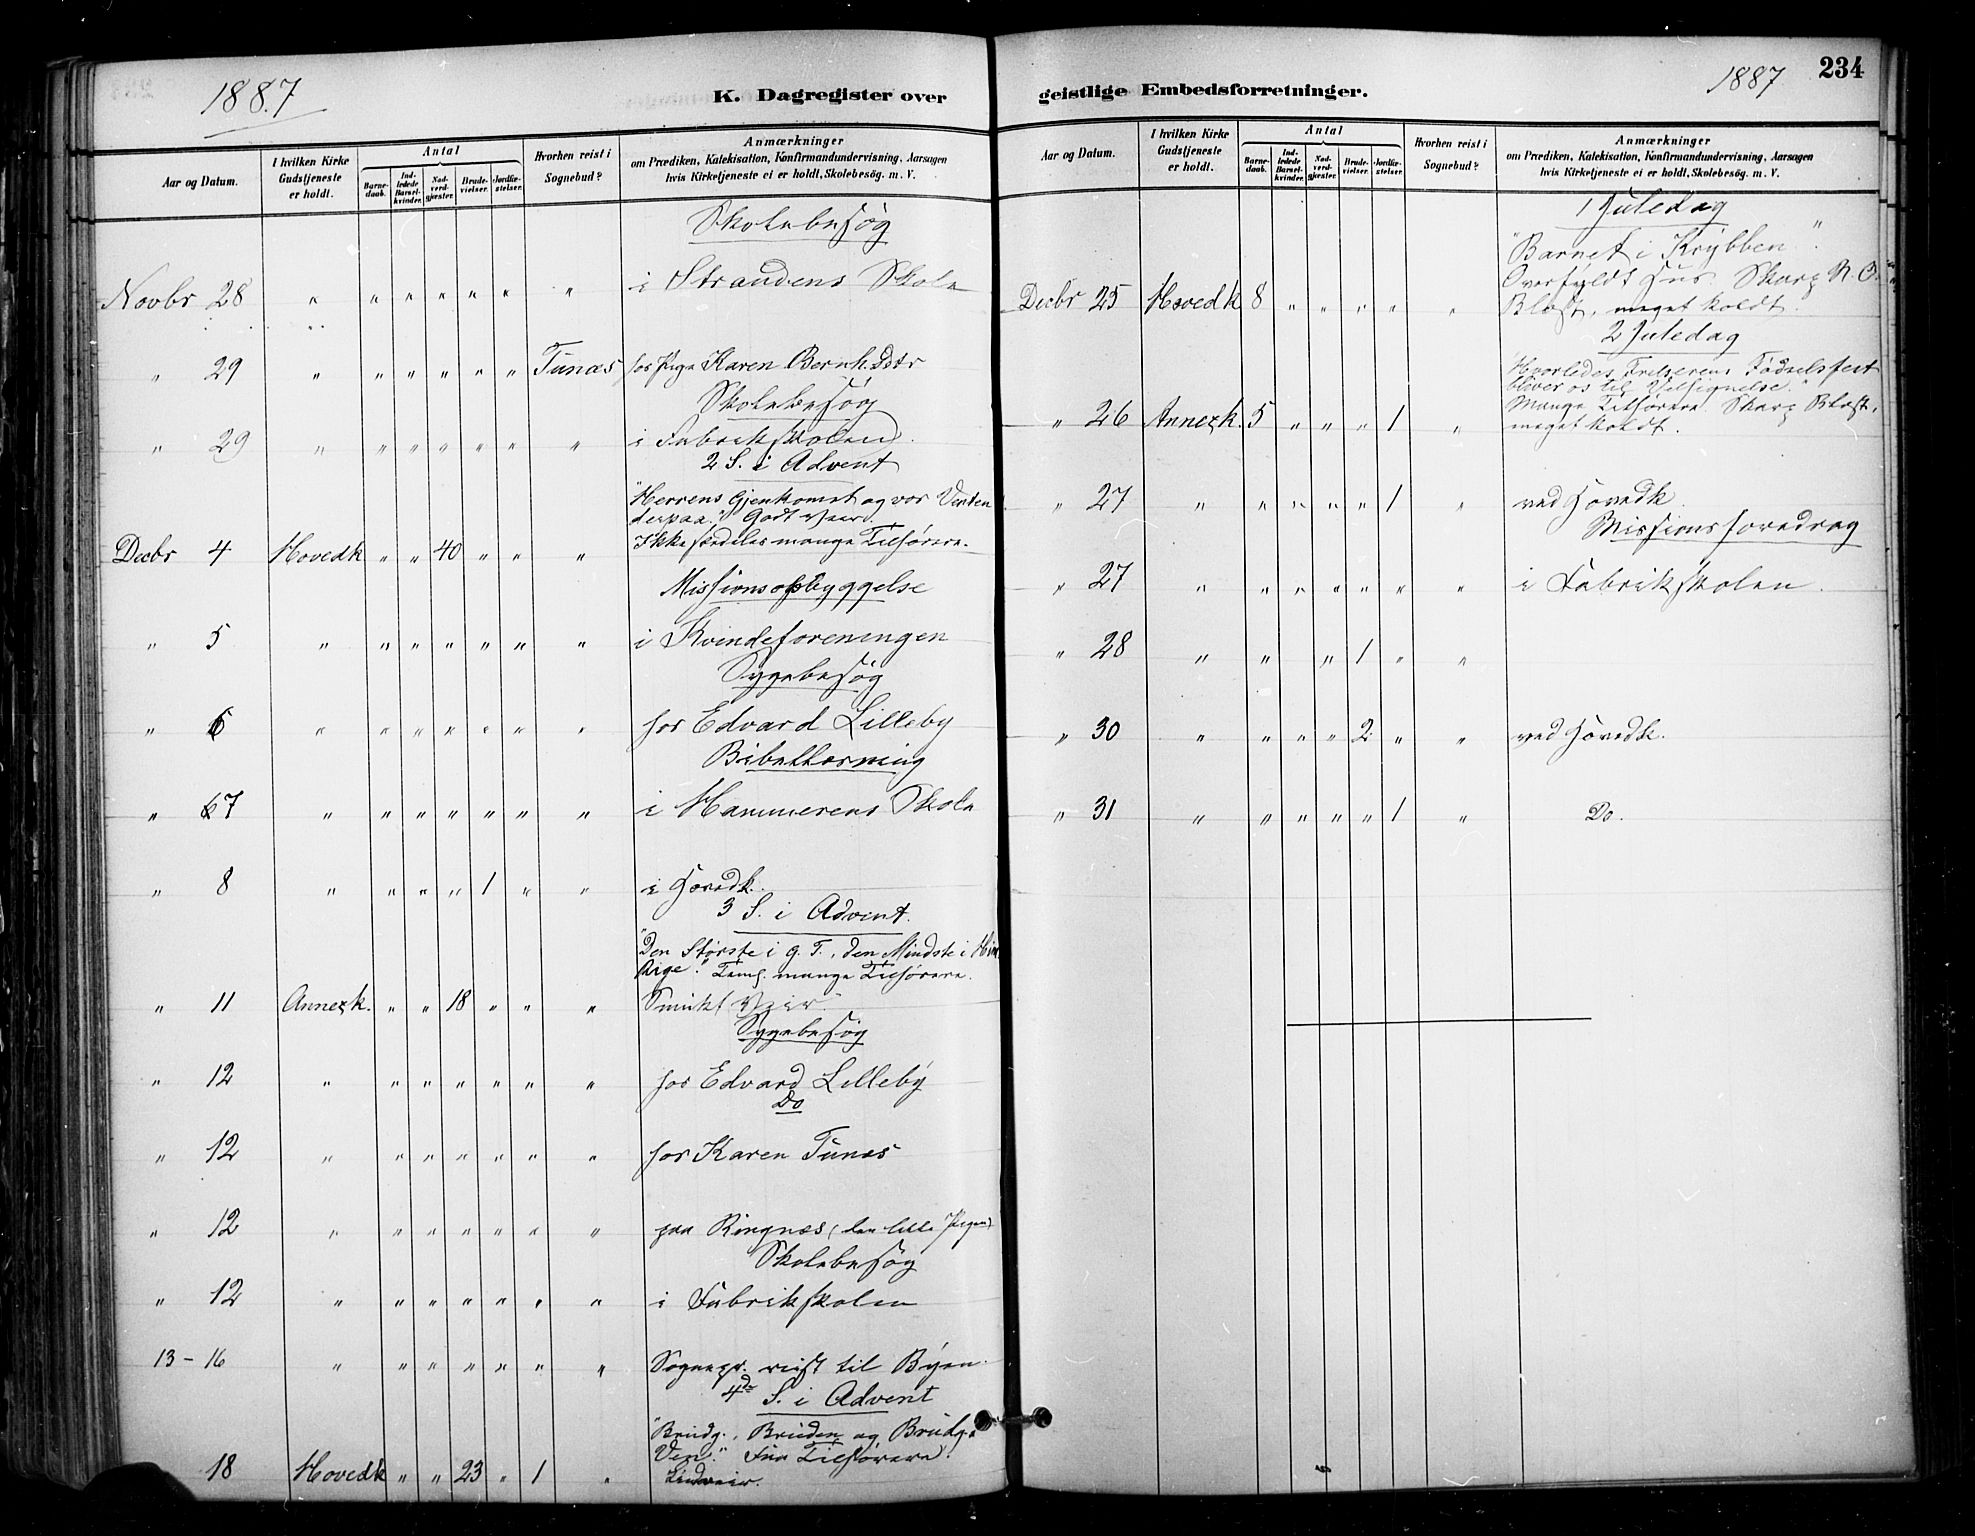 1887
K. Dagregister over
Aar og Datum.
I hvilken Kirke
Gudstjeneste
er holdt.
Antal
Barne-
daab.
Ind-
ledede
Barsel-
kvinder.
Nad-
verd-
gjæster.
Brude-
vielser.
Jordfæ-
stelser.
Hvorhen reist i
Sognebud?
Anmærkninger
om Prædiken, Katekisation, Konfirmandundervisning, Aarsagen
hvis Kirketjeneste ei er holdt, Skolebesøg. m. V.
Skolebesøg
Novbr 28 " " " " " " " i Strandens Skole
" 29 " " " " " " Tunæs hos Pige Karen Bernh.Datr
Skolebesøg
" 29 " " " " " " " i Fabrikskolen.
2 S. i Advent
"Herrens Gjenkomst og vor Venten
derpaa." Godt Veir.
Decbr 4 Hovedk " " 40 " " " Ikke særdeles mange Tilhørere.
Missionsopbyggelse
" 5 " " " " " " " i Kvindeforeningen
Sygebesøg
" 6 " " " " " " " hos Edvard Lilleby
Bibellæsning
" 7 " " " " " " " i Hammerens Skole
" 8 " " " " 1 " " i Hovedk.
3 S. i Advent.
"Den Største i g. T., den Mindste i Him.
Rige." Teml. mange Tilhørere.
" 11 Annexk. " " 18 " " " Smukt Veir.
Sygebesøg
" 12 " " " " " " " hos Edvard Lilleby
Do
" 12 " " " " " " " hos Karen Tunæs
" 12 " " " " " " " paa Ringnæs (den lille Pigen)
Skolebesøg
" 12 " " " " " " " i Fabrikskolen
13 - 16 " " " " " " " Sognepr. reist til Byen.
4de S. i Advent
"Brudg., Bruden og Brudg.s
Ven." Faa Tilhørere.
18 Hovedk " " 23 " 1 " Lindveir.
1887
234
geistlige Embedsforretninger.
Aar og Datum.
I hvilken Kirke
Gudstjeneste
er holdt.
Antal
Barne-
daab.
Ind-
ledede
Barsel-
kvinder.
Nad-
verd-
gjester.
Brude-
vielser.
Jordfæ-
stelser.
Hvorhen reist i
Sognebud?
Anmærkninger
om Prædiken, Katekisation, Konfirmandundervisning, Aarsagen
hvis Kirketjeneste ei er holdt, Skolebesøg. m. V.
1 Juledag
"Barnet i Krybben."
Overfyldt Hus. Skarp N. O.
Decbr 25 Hovedk 8 " " " " " Blæst, meget koldt.
2 Juledag
Hvorledes Frelserens Fødselsfest
bliver os til Velsignelse."
Mange Tilhørere. Skarp Blæst,
" 26 Annexk. 5 " " " 1 " meget koldt.
" 27 " " " " " 1 " ved Hovedk.
Missionsforedrag
" 27 " " " " " " " i Fabrikskolen.
" 28 " " " 1 " "
" 30 " " " " 2 " " ved Hovedk.
" 31 " " " " " 1 " Do.